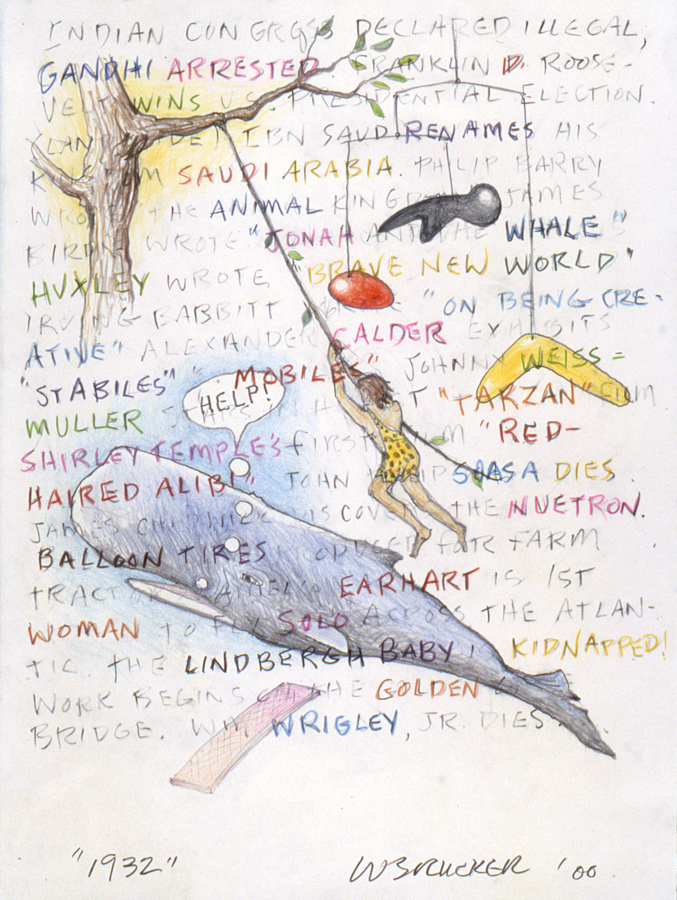 INDIAN CONGRESS DECLARED ILLEGAL,
GANDHI ARRESTED. FRANKLIN D. ROOSE-
VELT WINS U.S. PRESIDENTIAL ELECTION.
IBN SAUD RENAMES HIS
KINGDOM SAUDI ARABIA. PHILIP BARRY
WROTE THE ANIMAL KINGDOM JAMES
BIRDIE WROTE "JONAH AND THE WHALE"
HUXLEY WROTE "BRAVE NEW WORLD"
IRVING BABBITT WROTE "ON BEING CRE-
ATIVE" ALEXANDER CALDER EXHIBITS
"STABILES" "MOBILES" JOHNNY WEISS=
MULLER STARS IN "TARZAN" FILM
SHIRLEY TEMPLE'S FIRST FILM "RED-
HAIRED ALIBI" JOHN PHILIP SOUSA DIES.
JAMES CHADWICK DISCOVERS THE NUETRON.
BALLOON TIRES PRODUCED FOR FARM
TRACTORS AMELIA EARHART IS 1ST
WOMAN TO FLY SOLO ACROSS THE ATLAN-
TIC. THE LINDBERGH BABY IS KIDNAPPED!
WORK BEGINS ON THE GOLDEN
BRIDGE. WM WRIGLEY, JR. DIES.
HELP!
"1932"
'00